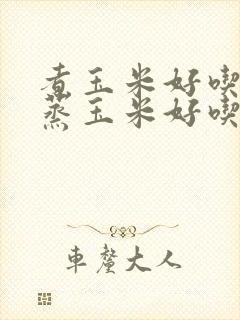 煮玉米好喫
蒸玉米好喫
車釐大人